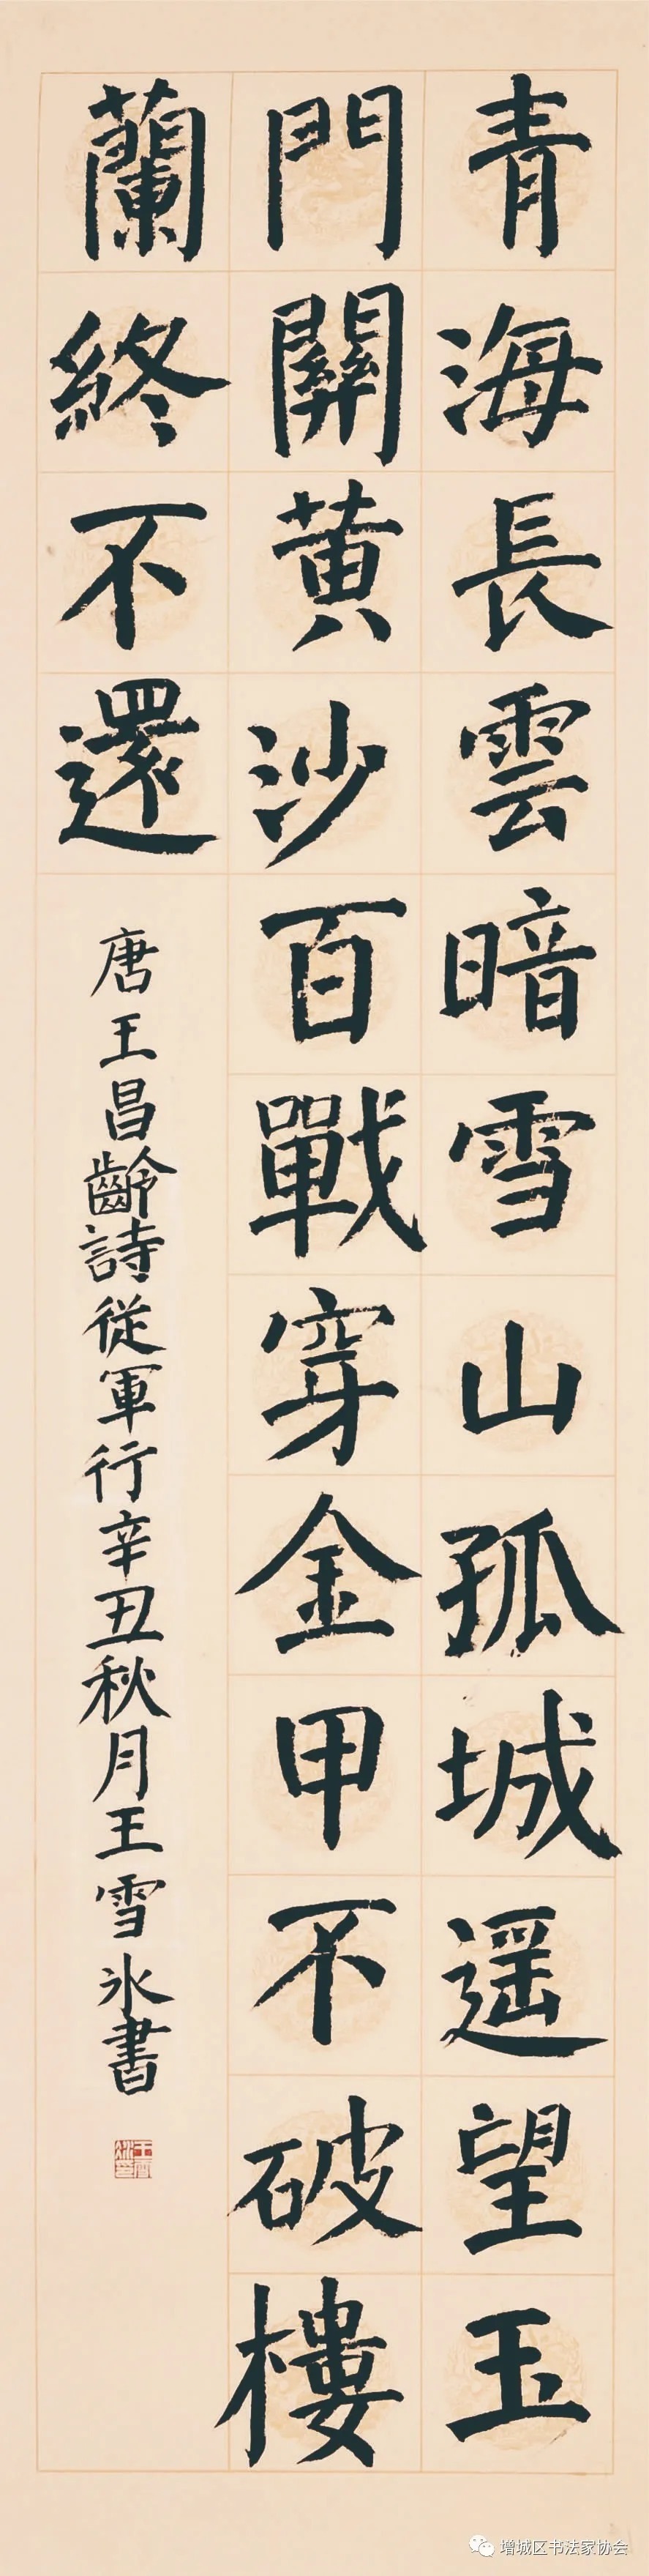 青海長雲暗雪山孤城遥望玉
門關黄沙百戰穿金甲不破樓
蘭終不還
唐王昌齡詩從軍行辛丑秋月王雪冰書
增城区书法家协会